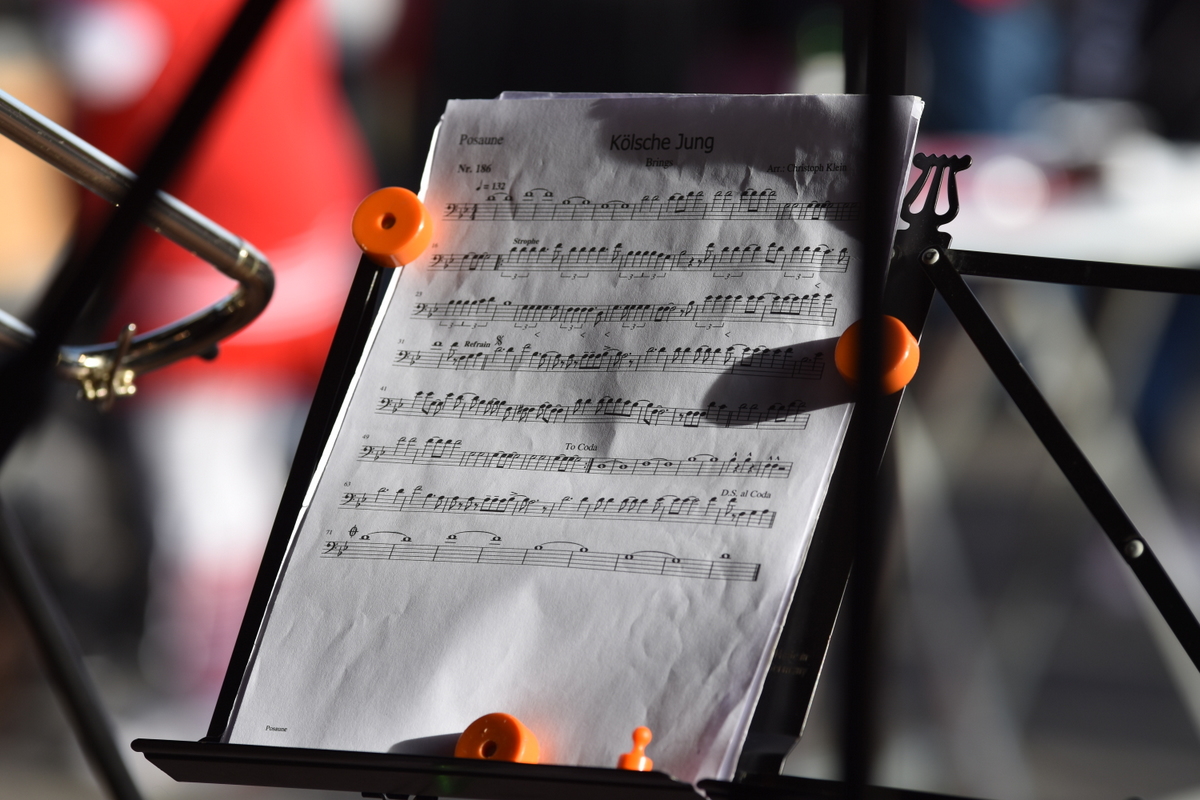 Posaune
Kölsche Jung
Nr. 186
Brings
Arr.: Christoph Klein
♩ = 132
Strophe
Refrain
41
49
To Coda
63
D.S. al Coda
71
Posaune